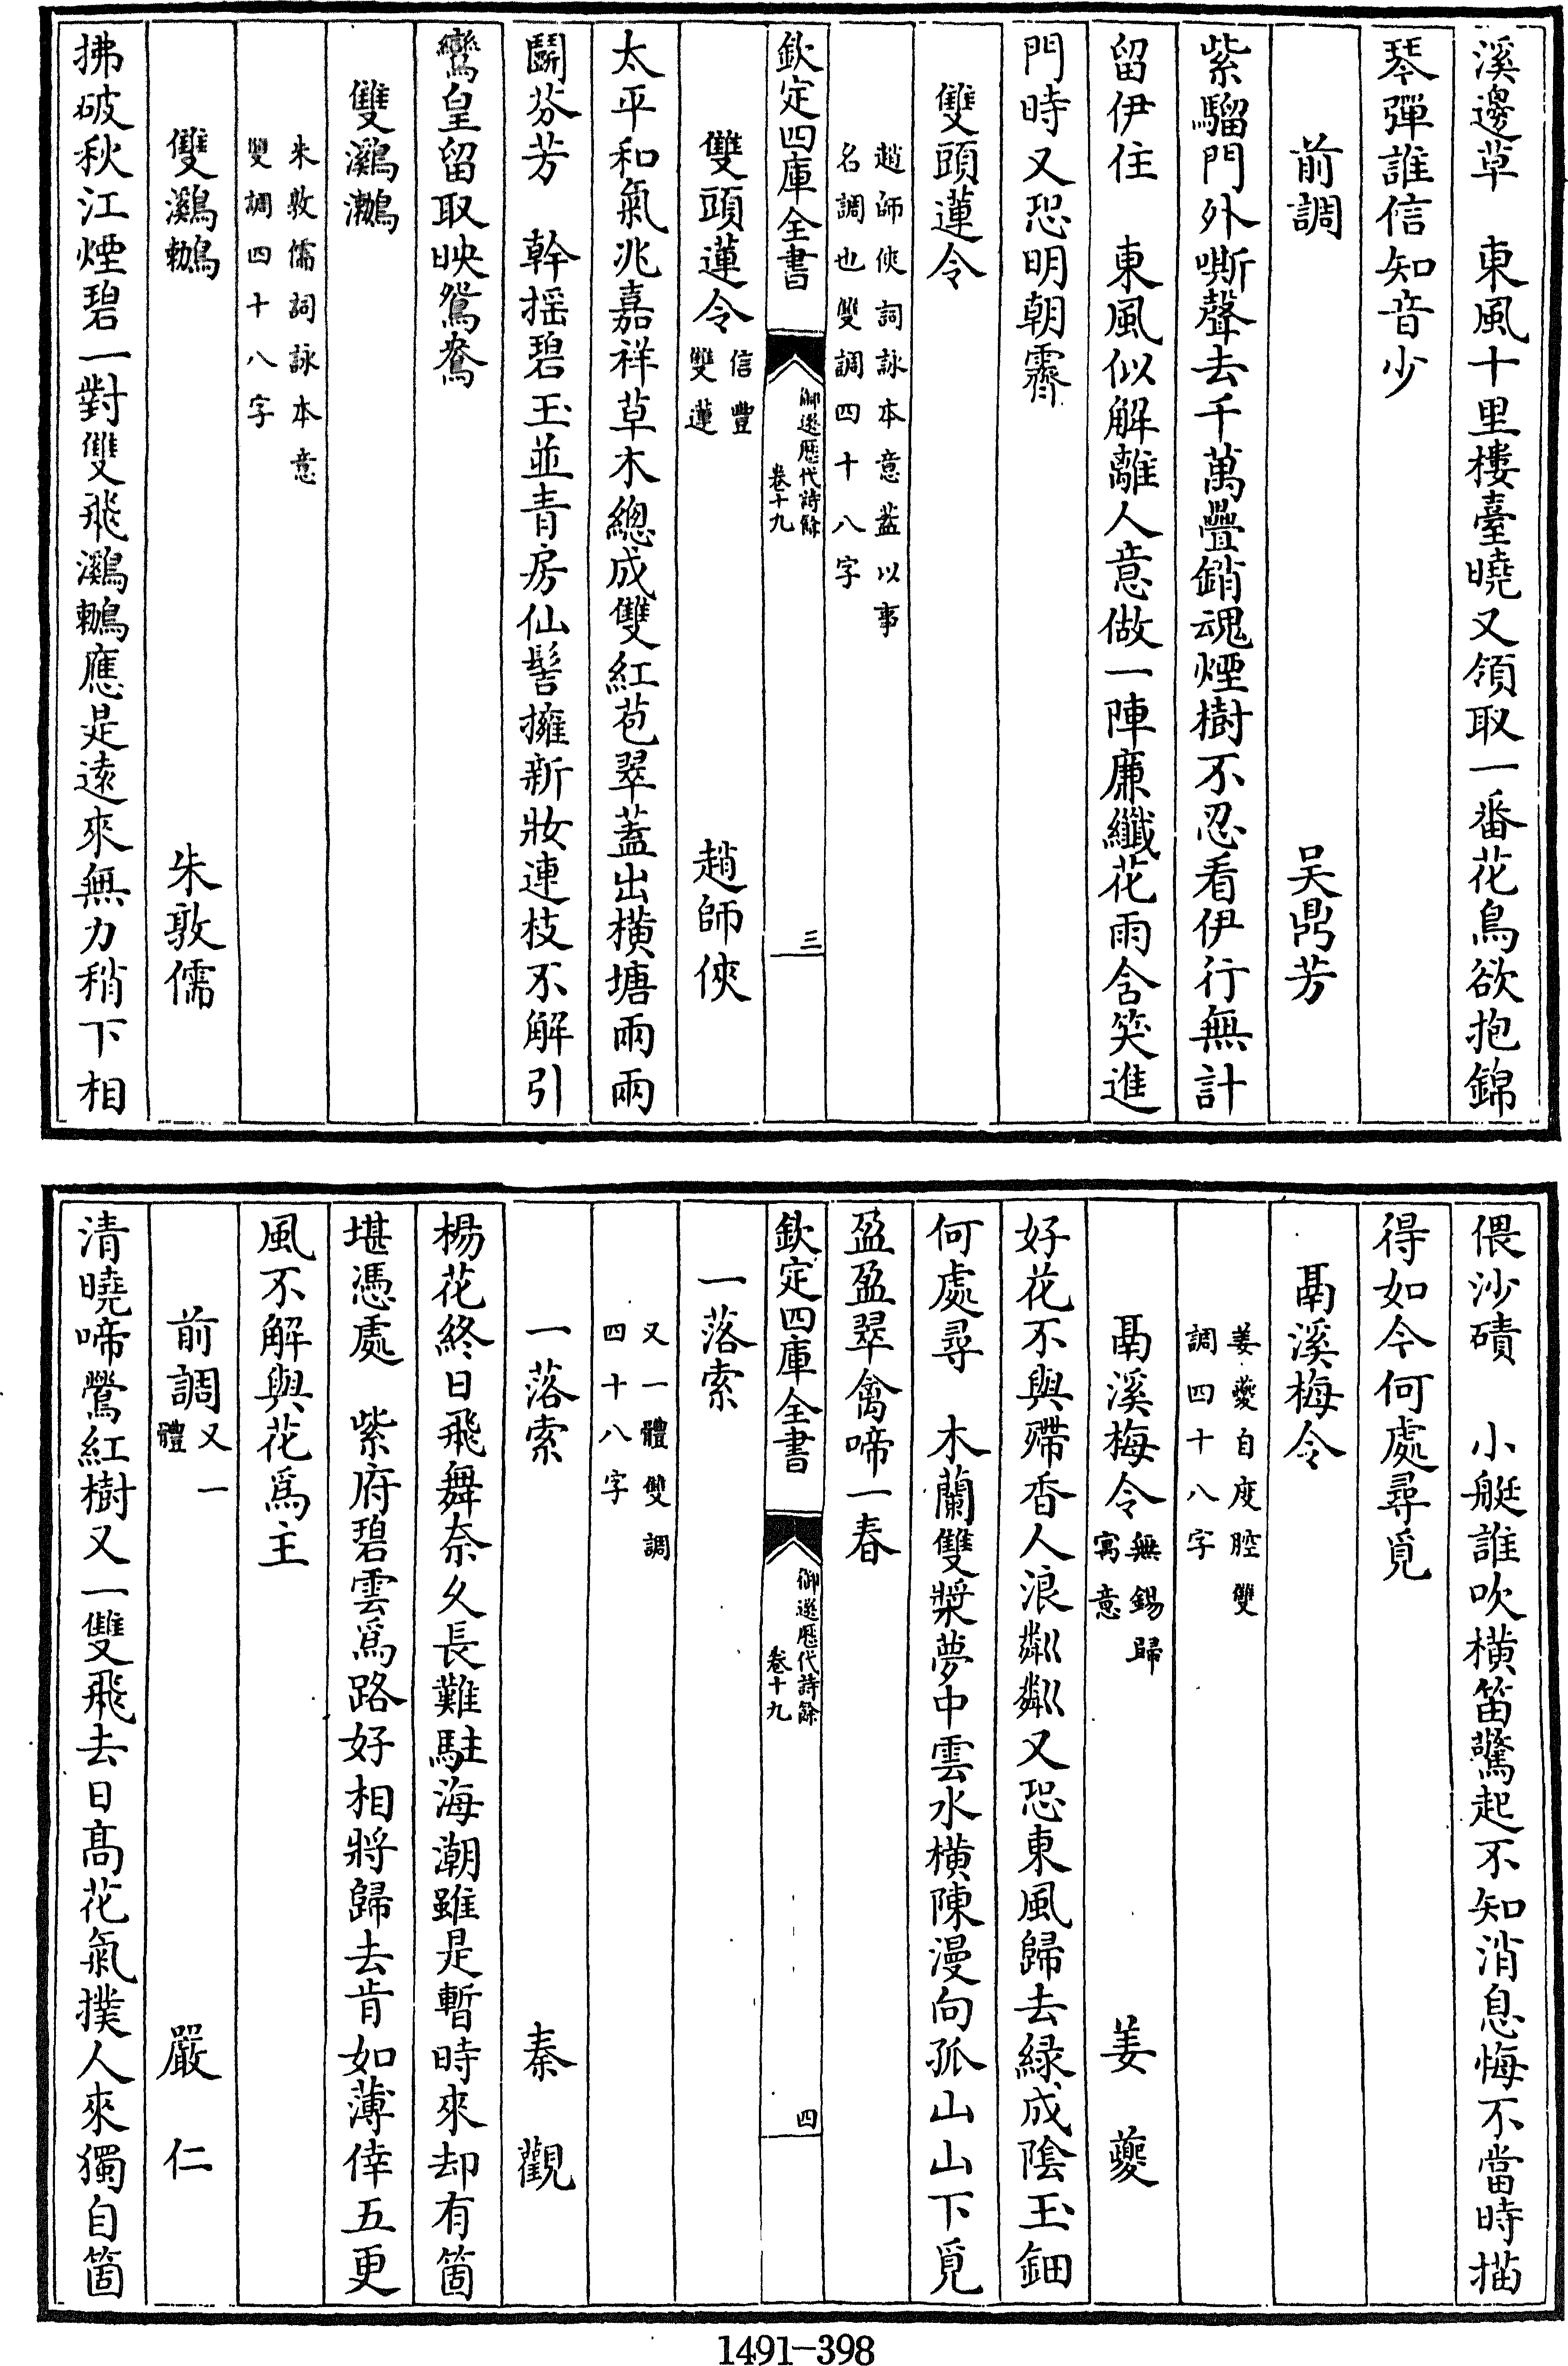 溪邊草　東風十里樓臺曉又領取一番花鳥欲抱錦
琴彈誰信知音少
前調　吴鼎芳
紫騮門外嘶聲去千萬疊銷魂煙樹不忍看伊行無計
留伊住　東風似解離人意做一陣廉纖花雨含笑進
門時又恐明朝霽
雙頭蓮令
趙師俠詞詠本意葢以事
名調也雙調四十八字
欽定四庫全書
御選歷代詩餘
卷十九
三
雙頭蓮令　信豐
雙蓮　趙師俠
太平和氣兆嘉祥草木總成雙紅苞翠蓋出橫塘兩兩
鬬芬芳　幹摇碧玉並青房仙髻擁新妝連枝不解引
鸞皇留取映鴛鴦
雙鸂𪆟
朱敦儒詞詠本意
雙調四十八字
雙鸂𪆟　朱敦儒
拂破秋江煙碧一對雙飛鸂𪆟應是逺來無力稍下相
偎沙磧　小艇誰吹橫笛驚起不知消息悔不當時描
得如今何處尋覓
鬲溪梅令
姜夔自度腔雙
調四十八字
鬲溪梅令　無錫歸
寓意　姜夔
好花不與殢香人浪粼粼又恐東風歸去緑成隂玉鈿
何處尋　木蘭雙槳夢中雲水橫陳漫向孤山山下覓
盈盈翠禽啼一春
欽定四庫全書
御選歷代詩餘
卷十九
四
一落索
又一體雙調
四十八字
一落索　秦觀
楊花終日飛舞奈乆長難駐海潮雖是暫時來却有箇
堪憑處　紫府碧雲爲路好相將歸去肯如薄倖五更
風不解與花爲主
前調　又一
體　嚴仁
清曉啼鶯紅樹又一雙飛去日髙花氣撲人來獨自箇
1491-398